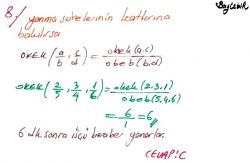 8./ yanma sürelerinin katlarına
bakılırsa
OKEK (a/b, c/d) = okek(a,c) / obeb(b,d)
OKEK (2/5, 3/4, 1/6) = okek(2.3.1) / obeb(5,4,6)
= 6/1 = 6
6 dk sonra üçü beraber yanarlar.
CEVAP: C